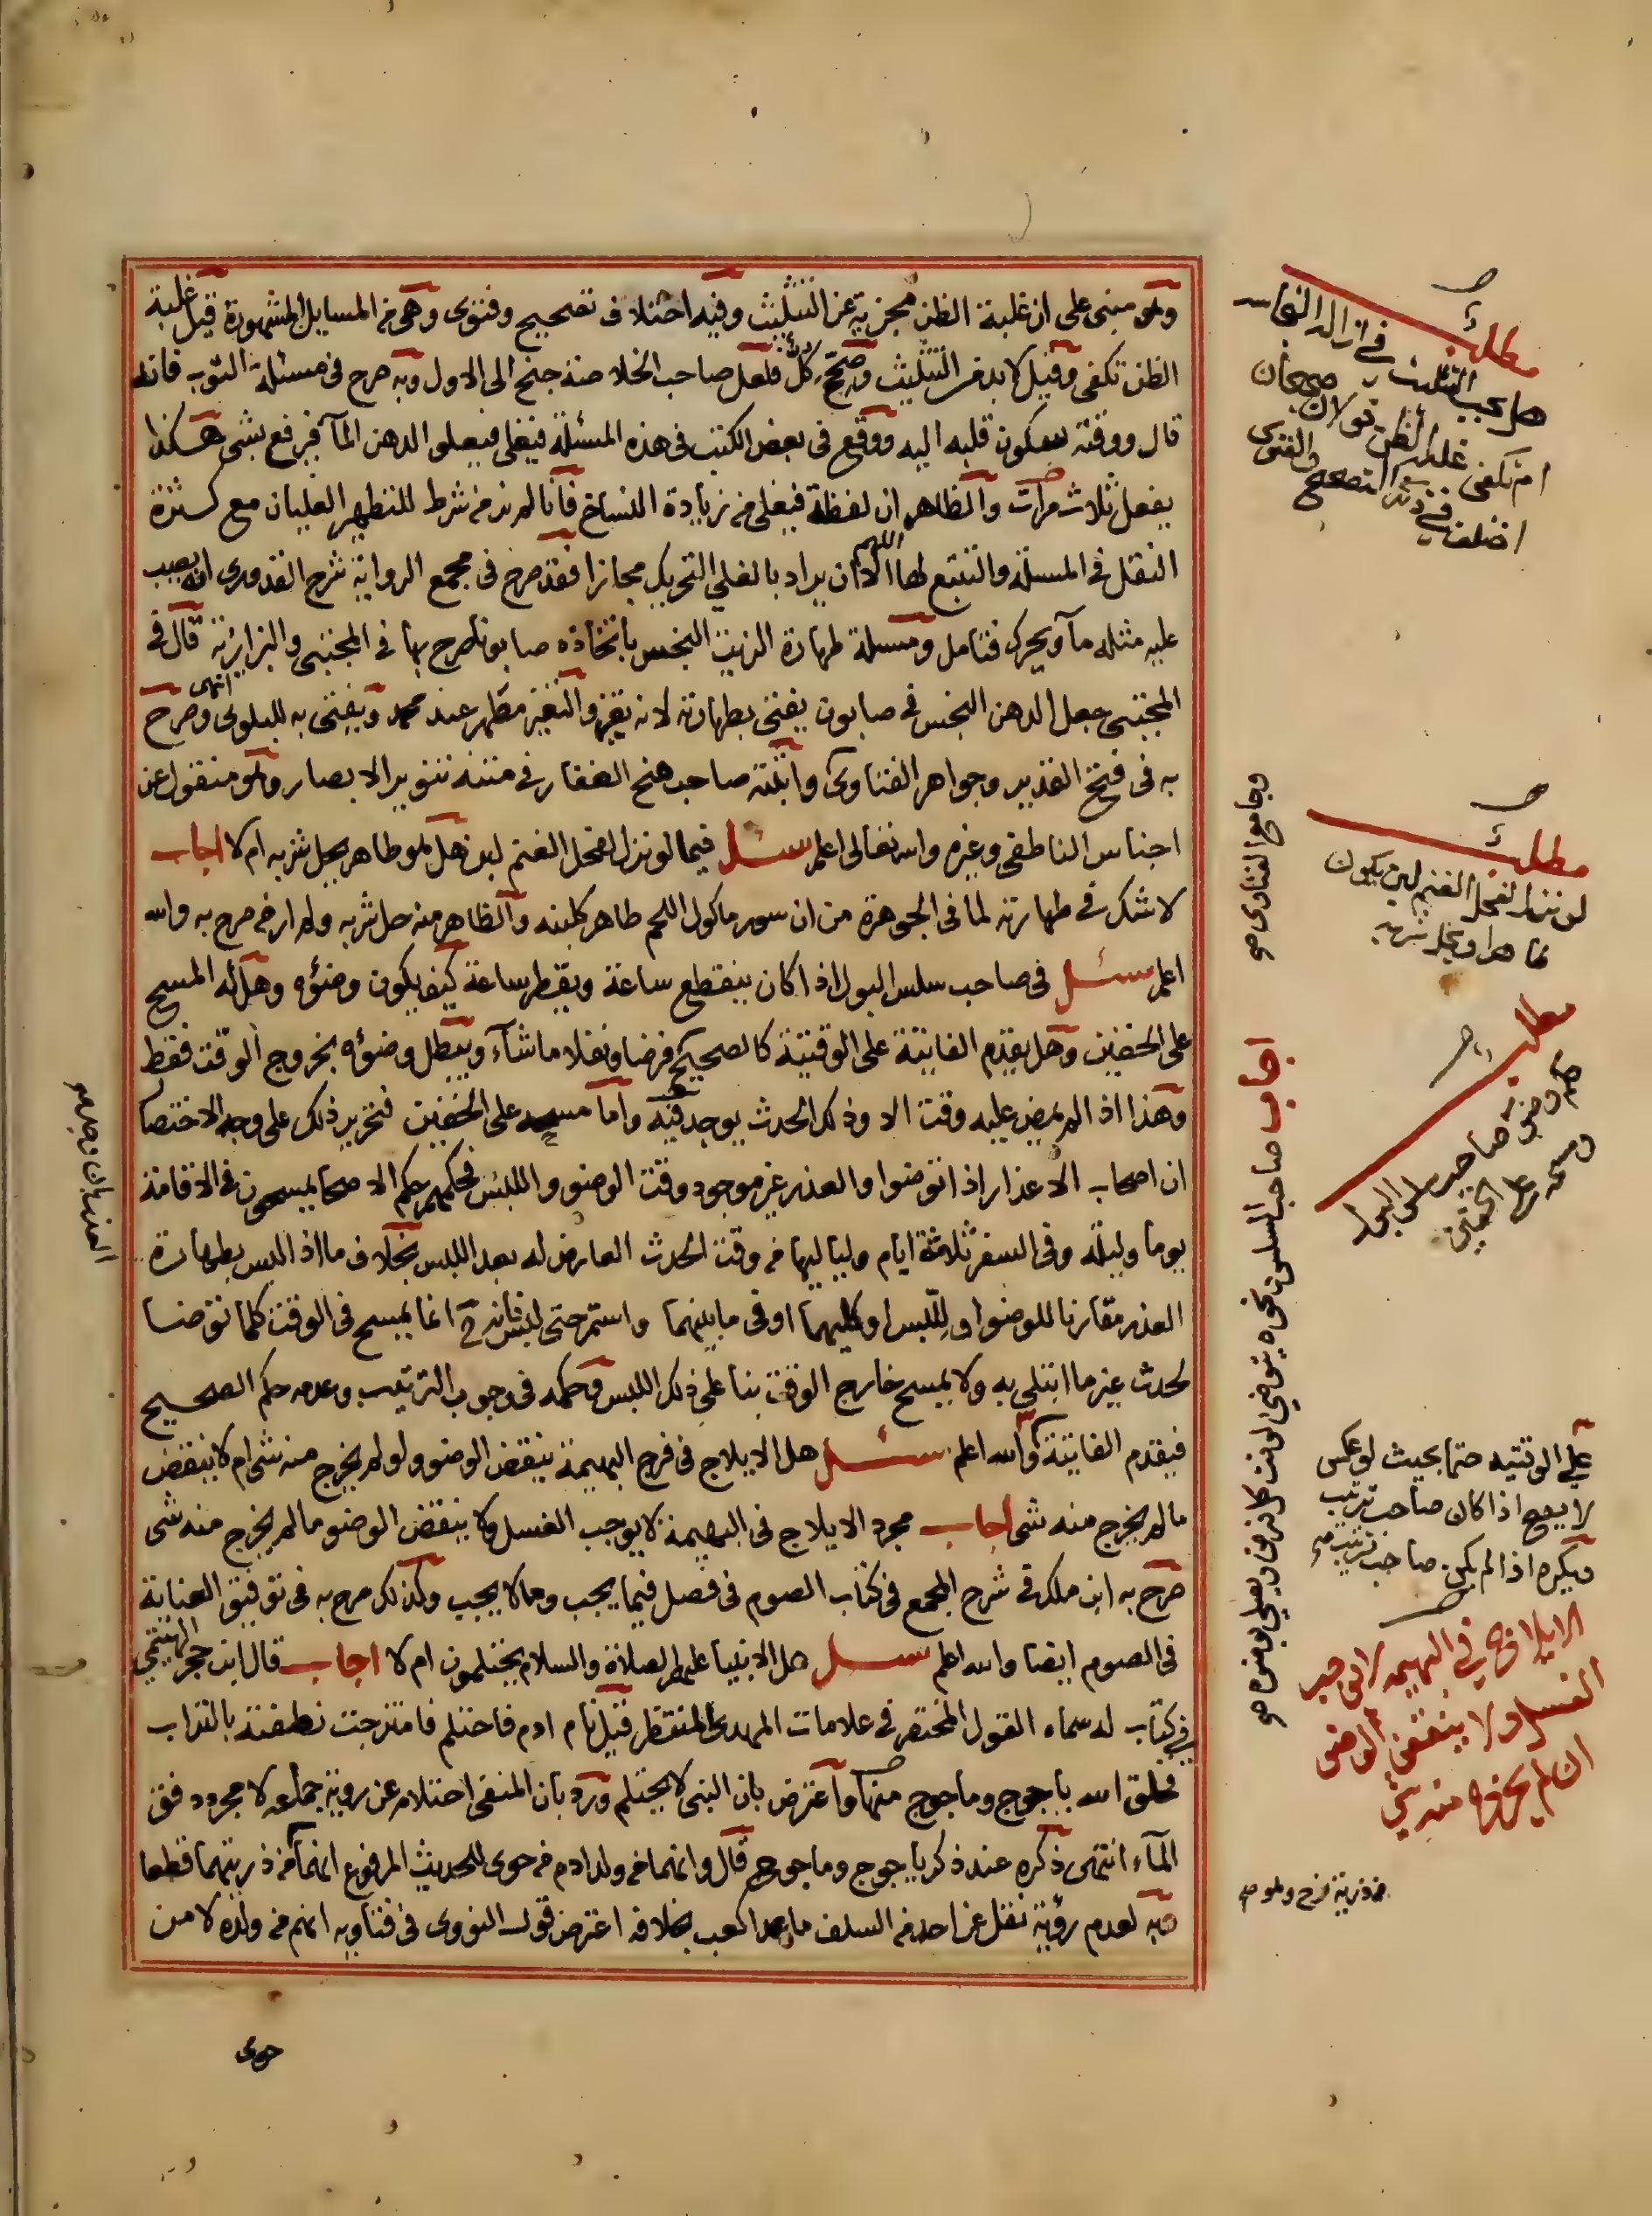 وهو مبنى على ان غلبة الظن مجزية عن التثليث وفيه اختلاف تصحيح وفتوى وهى من المسايل المشهورة قيل غلبة
الظن تكفى وقيل لا بد من التثليث وصحح كل فلعل صاحب الخلاصة جنح الى الاول وبه صرح فى مسئلة الثوب فانه
قال ووقته سكون قلبه اليه ووقع فى بعض الكتب فى هذه المسئلة فيغلى فيعلو الدهن المآ فيرفع بشى هكذا
يفعل ثلاث مرات والظاهر ان لفظة فيغلى من زيادة النساخ فانا لم نر من شرط للتطهير الغليان مع كثرة
النقل فى المسئلة والتتبع لها اللهم الا ان يراد بالغلي التحريك مجازا فقد صرح فى مجمع الرواية شرح القدورى انه يصب
عليه مثله مآ ويحرك فتامل ومسئلة طهارة الزيت النجس باتخاذه صابونا صرح بها فى المجتبى والبزازية قال فى
المجتبى جعل الدهن النجس فى صابون يفتى بطهارته لانه تغير والتغير مطهر عند محمد ويفتى به للبلوى انتهى وصرح
به فى فتح القدير وجواهر الفتاوى واثبته صاحب منح الغفار فى متنه تنوير الابصار وهو منقول عن
اجناس الناطفى وغيره والله تعالى اعلم سئل فيما لو نزل لفحل الغنم لبن هل هو طاهر يحل شربه ام لا اجاب
لا شك فى طهارته لما فى الجوهرة من ان سور ماكول اللحم طاهر كلبنه والظاهر منه حل شربه ولم ار من صرح به والله
اعلم سئل فى صاحب سلس البول اذا كان ينقطع ساعة ويقطر ساعة كيف يكون وضؤه وهل له المسح
على الخفين وهل يقدم الفايتة على الوقتية كالصحيح فرضا ونفلا ما شآء ويبطل وضؤه بخروج الوقت فقط
وهذا اذا لم يمض عليه وقت الا وذلك الحدث يوجد فيه واما مسحه على الخفين فتحرير ذلك على وجه الاختصا
ان اصحاب الاعذار اذا توضوا والعذر غير موجود وقت الوضو واللبس فحكمهم حكم الاصحا يمسحون فى الاقامة
يوما وليلة وفى السفر ثلاثة ايام ولياليها من وقت الحدث العارض له بعد اللبس بخلاف ما اذا لبس بطهارة
العذر مقارنا للوضوا وللبس او كليهما او فى ما بينهما واستمر حتى لبس فانه انما يمسح فى الوقت كلما توضا
لحدث غير ما ابتلى به ولا يمسح خارج الوقت بنا على ذلك اللبس وحكمه فى وجوب الترتيب وعدمه حكم الصحيح
فيقدم الفايتة والله اعلم سئل هل الايلاج فى فرج البهيمة ينقض الوضو ولو لم يخرج منه شى ام لا ينقض
ما لم يخرج منه شى اجاب مجرد الايلاج فى البهيمة لا يوجب الغسل ولا ينقض الوضو ما لم يخرج منه شى
صرح به ابن ملك فى شرح المجمع فى كتاب الصوم فى فصل فيما يجب وما لا يجب وكذلك صرح به فى توفيق العناية
فى الصوم ايضا والله اعلم سئل هل الانبيا عليهم الصلاة والسلام يحتلمون ام لا اجاب قال ابن حجر الهيتمي
فى كتاب له سماه القول المختصر فى علامات المهدى المنتظر قيل نام ادم فاحتلم فامتزجت نطفته بالتراب
فخلق الله ياجوج وماجوج منها واعترض بان النبى لا يحتلم ورد بان المنفى احتلام عن روية جماع لا مجرد دفق
المآء انتهى ذكره عند ذكر ياجوج وماجوج قال وانهما من ولد ادم من حوى للحديث المرفوع انهما من ذريتهما قطعا
وبه لعدم رؤية نقل عن احد من السلف ما عدا كعب بخلافه اعترض قول النووى فى فتاويه انهم من ولده لا من
حوى
مطلب
هل يجب التثليث فى ازالة النجاسه
ام تكفى غلبة الظن قولان صحيحان
اختلف فى ذلك التصحيح والفتوى
وجامع الفتاوى صح
مطلب
لو نزل لفحل الغنم لبن يكون
طاهرا ويحل شربه
مطلب
حكم وضو صاحب سلس البول
ومسحه على الخفين
اجاب صاحب السلس ونحوه يتوضى لوقت كل فرض ويصلى بوضوه صح
على الوقتيه حتما بحيث لو عكس
لا يصح اذا كان صاحب ترتيب
ويكره اذا لم يكن صاحب ترتيب صح
الايلاج فى البهيمه لا يوجب
الغسل ولا ينقض الوضو
ان لم يخرج منه شى
من ذرية نوح وهو صح